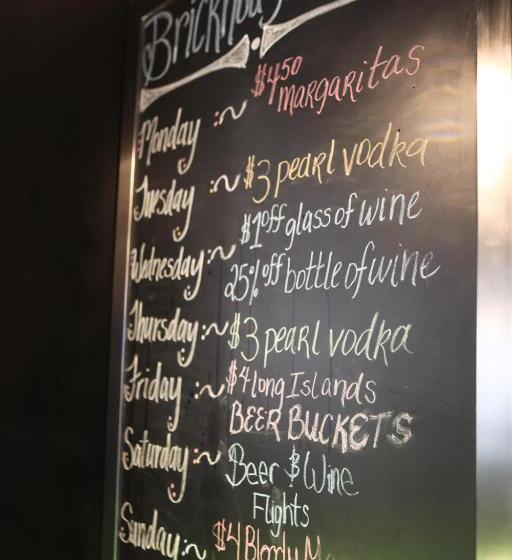 $4.50
Monday :~ margaritas
Tuesday :~ $3 pearl vodka
$1 off glass of wine
Wednesday :~ 25% off bottle of wine
Thursday :~ $3 pearl vodka
Friday :~ $4 long Islands
BEER BUCKETS
Saturday :~ Beer & Wine
Flights
Sunday :~ $4 Bloody M